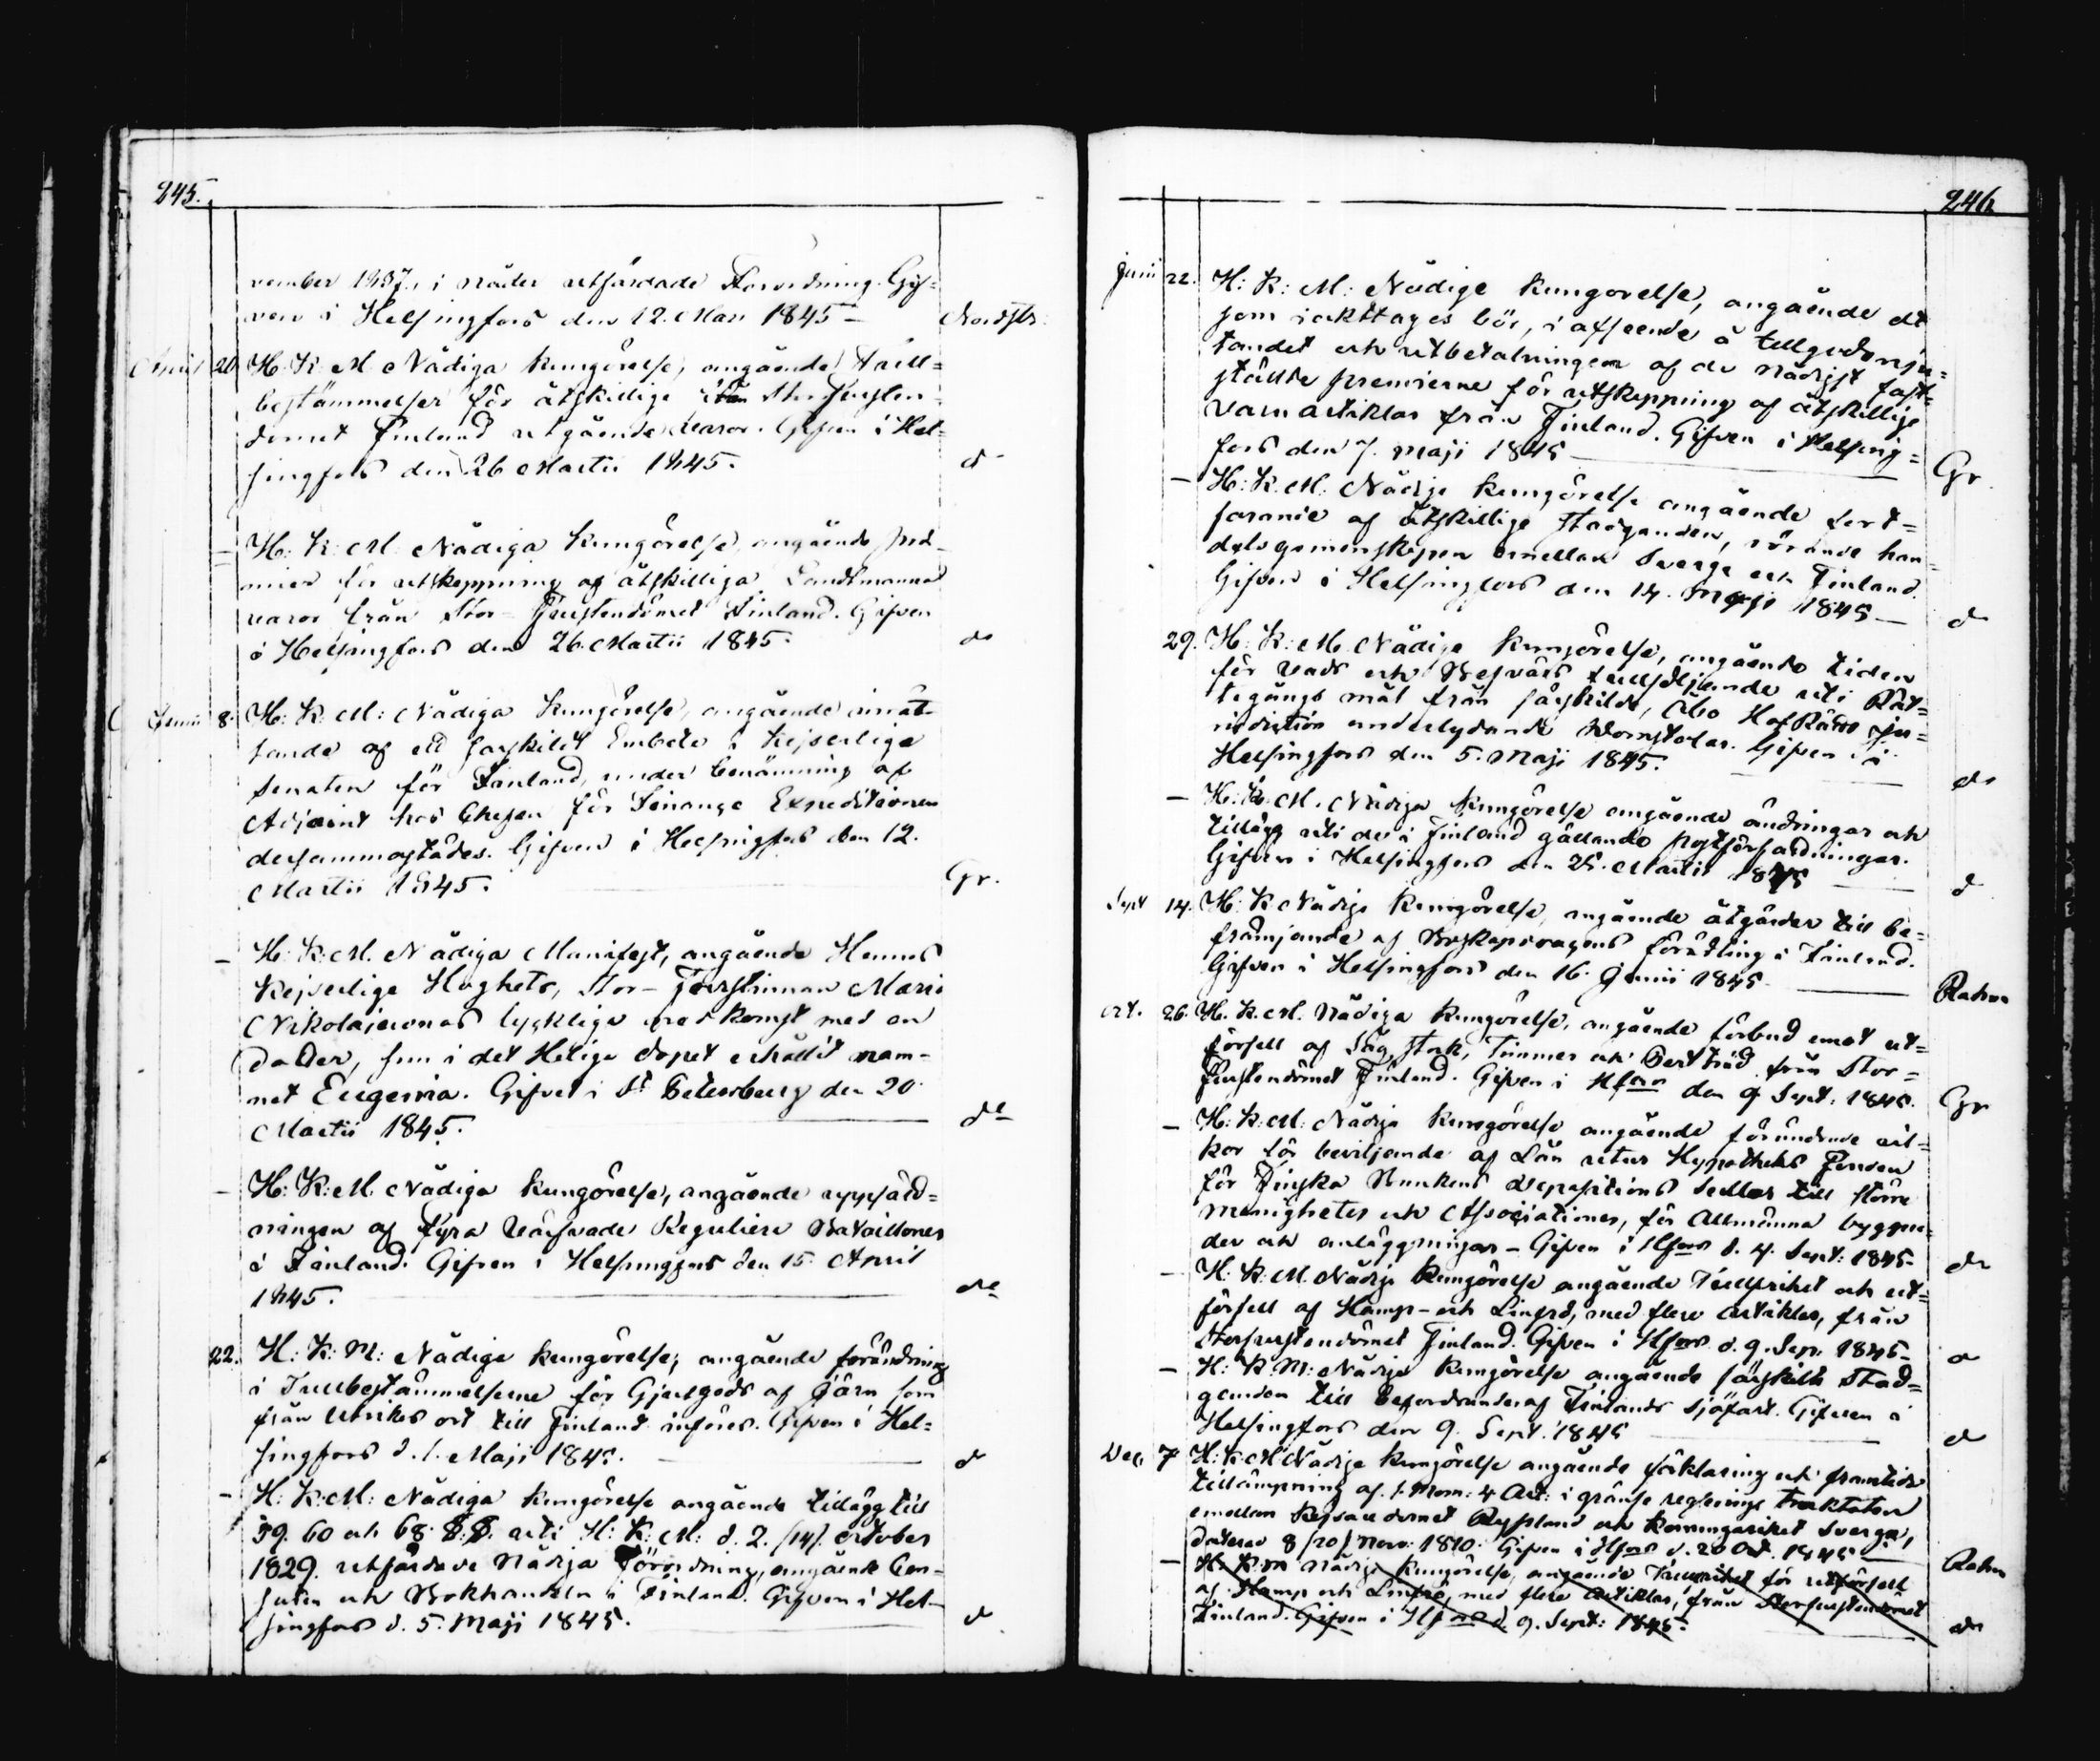 245.
vember 1837, i nåder utfärdade Förordning. Gif-
ven i Helsingfors den 12. Mars 1845 —
April 20 H. K. M. Nådiga Kungörelse, angående Tull-
bestämmelser för åtskillige från Storfursten-
dömet Finland utgående varor. Gifven i Hel-
singfors den 26 Martii 1845. d
— H: K: M: Nådiga Kungörelse, angående pre-
mier för utskeppning af åtskilliga Landtmanna
varor från Stor-Furstendömet Finland. Gifven
i Helsingfors den 26. Martii 1845. do
Junii 8. H: K: M: Nådiga Kungörelse, angående inrät-
tande af ett särskildt Embete i Kejserliga
Senaten för Finland, under benämning af
Adjoint hos Chefen för Finance Expeditionen
dersammastädes. Gifven i Helsingfors den 12.
Martii 1845. Gr.
— H: K: M. Nådiga Manifest, angående Hennes
Kejserliga Höghets, Stor-Furstinnan Marie
Nikolajewnas lyckliga nedkomst med en
Dotter, som i det Heliga dopet erhållit nam-
net Eugenia. Gifvet i St Petersburg den 20
Martii 1845. do
— H: K: M. Nådiga Kungörelse, angående uppsätt-
ningen af fyra Värfvade Reguliere Batailloner
i Finland. Gifven i Helsingfors den 15 April
1845. do
22. H: K: M: Nådiga Kungörelse, angående förändring
i Tullbestämmelserne för Gjutgods af Järn som
från Utrikes ort till Finland införes. Gifven i Hel-
singfors d. 1. Maji 1845. d
— H: K: M: Nådiga Kungörelse angående tillägg till
59. 60 och 68. §. §. uti H: K: M: d. 2. /14/. October
1829. utfärdade Nådiga Förordning, angående Cen-
suren och Bokhandeln i Finland. Gifven i Hel-
singfors d. 5. Maji 1845. d
246
Junii 22. H: K: M: Nådige Kungörelse, angående det
som iakttages bör, i afseende å tillgodonju-
tandet och utbetalningen af de nådigst fast-
ställde premierne för utskeppning af åtskillige
varu artiklar från Finland. Gifven i Helsing-
fors den 7. Maji 1845 — Gr.
— H: K. M: Nådige Kungörelse angående fort-
farande af åtskillige stadganden, rörande han-
delsgemenskapen emellan Sverge och Finland.
Gifven i Helsingfors den 14. Maji 1845 — d
29. H: K: M. Nådige Kungörelse, angående tiden
för Vads och Besvärs fullföljande uti Rät-
tegångs mål från särskilde, Åbo HofRätts ju-
risdiction underlydande Domstolar. Gifven i
Helsingfors den 5. Maji 1845. do
— H: K. M. Nådiga Kungörelse angående ändringar och
tillägg uti de i Finland gällande postförfattningar.
Gifven i Helsingfors den 25. Martii 1845 d
Sept 14. H: K Nådige Kungörelse, angående åtgärder till be-
främjande af Boskapsracens förädling i Finland.
Gifven i Helsingfors den 16. Junii 1845
Oct. 26. H. K. M. Nådiga Kungörelse, angående förbud emot ut-
försel af Såg stock, Timmer och träd från Stor-
Furstendömet Finland. Gifven i Hfors den 9 Sept. 1845. Gr
— H: K: M: Nådige Kungörelse angående förändrade vil-
kor för beviljande af Lån utur Hypotheks Fonden
för Finska Bankens depositions Sedlar till större
menigheter och Associationer, för Allmänna byggna-
der och anläggningar — Gifven i Hfors d. 4. Sept: 1845. do
— H: K: M. Nådige Kungörelse angående Tullfrihet och ut-
försell af Hamp- och Linfrö, med flere artiklar, från
Storfurstendömet Finland. Gifven i Hfors d. 9. Sep. 1845 d
— H: K. M: Nådige Kungörelse angående särskilte Stad-
ganden till befordrande af Finlands sjöfart. Gifven i
Helsingfors den 9. Sept. 1845 d
Dec. 7 H: K: M Nådige Kungörelse angående förklaring och framtida
tillämpning af 1. Mom: 4 Art: i gränse reglerings Traktaten
emellan Kejsaredömet Ryssland och Konungariket Sverge,
daterad 8 /20/ Nov: 1810. Gifven i Hfors d. 20 Oct. 1845
— H: K: M Nådige Kungörelse, angående Tullfrihet för utförsell
af Hamp och Linfrö, med flere artiklar, från Storfurstendömet
Finland. Gifven i Hfors d. 9. Sept: 1845. do